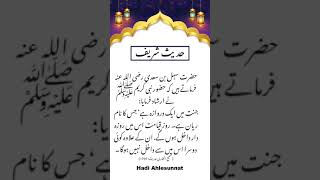 حدیث شریف
حضرت سہل بن سعدی رضی اللہ عنہ
فرماتے ہیں کہ حضور نبی کریم ﷺ
نے ارشاد فرمایا:
جنت میں ایک دروازہ ہے جس کا نام
ریان ہے۔ روز قیامت اس میں روزہ
دار داخل ہوں گے، ان کے علاوہ کوئی
دوسرا اس میں سے داخل نہیں ہوگا۔
Hadi Ahlesunnat